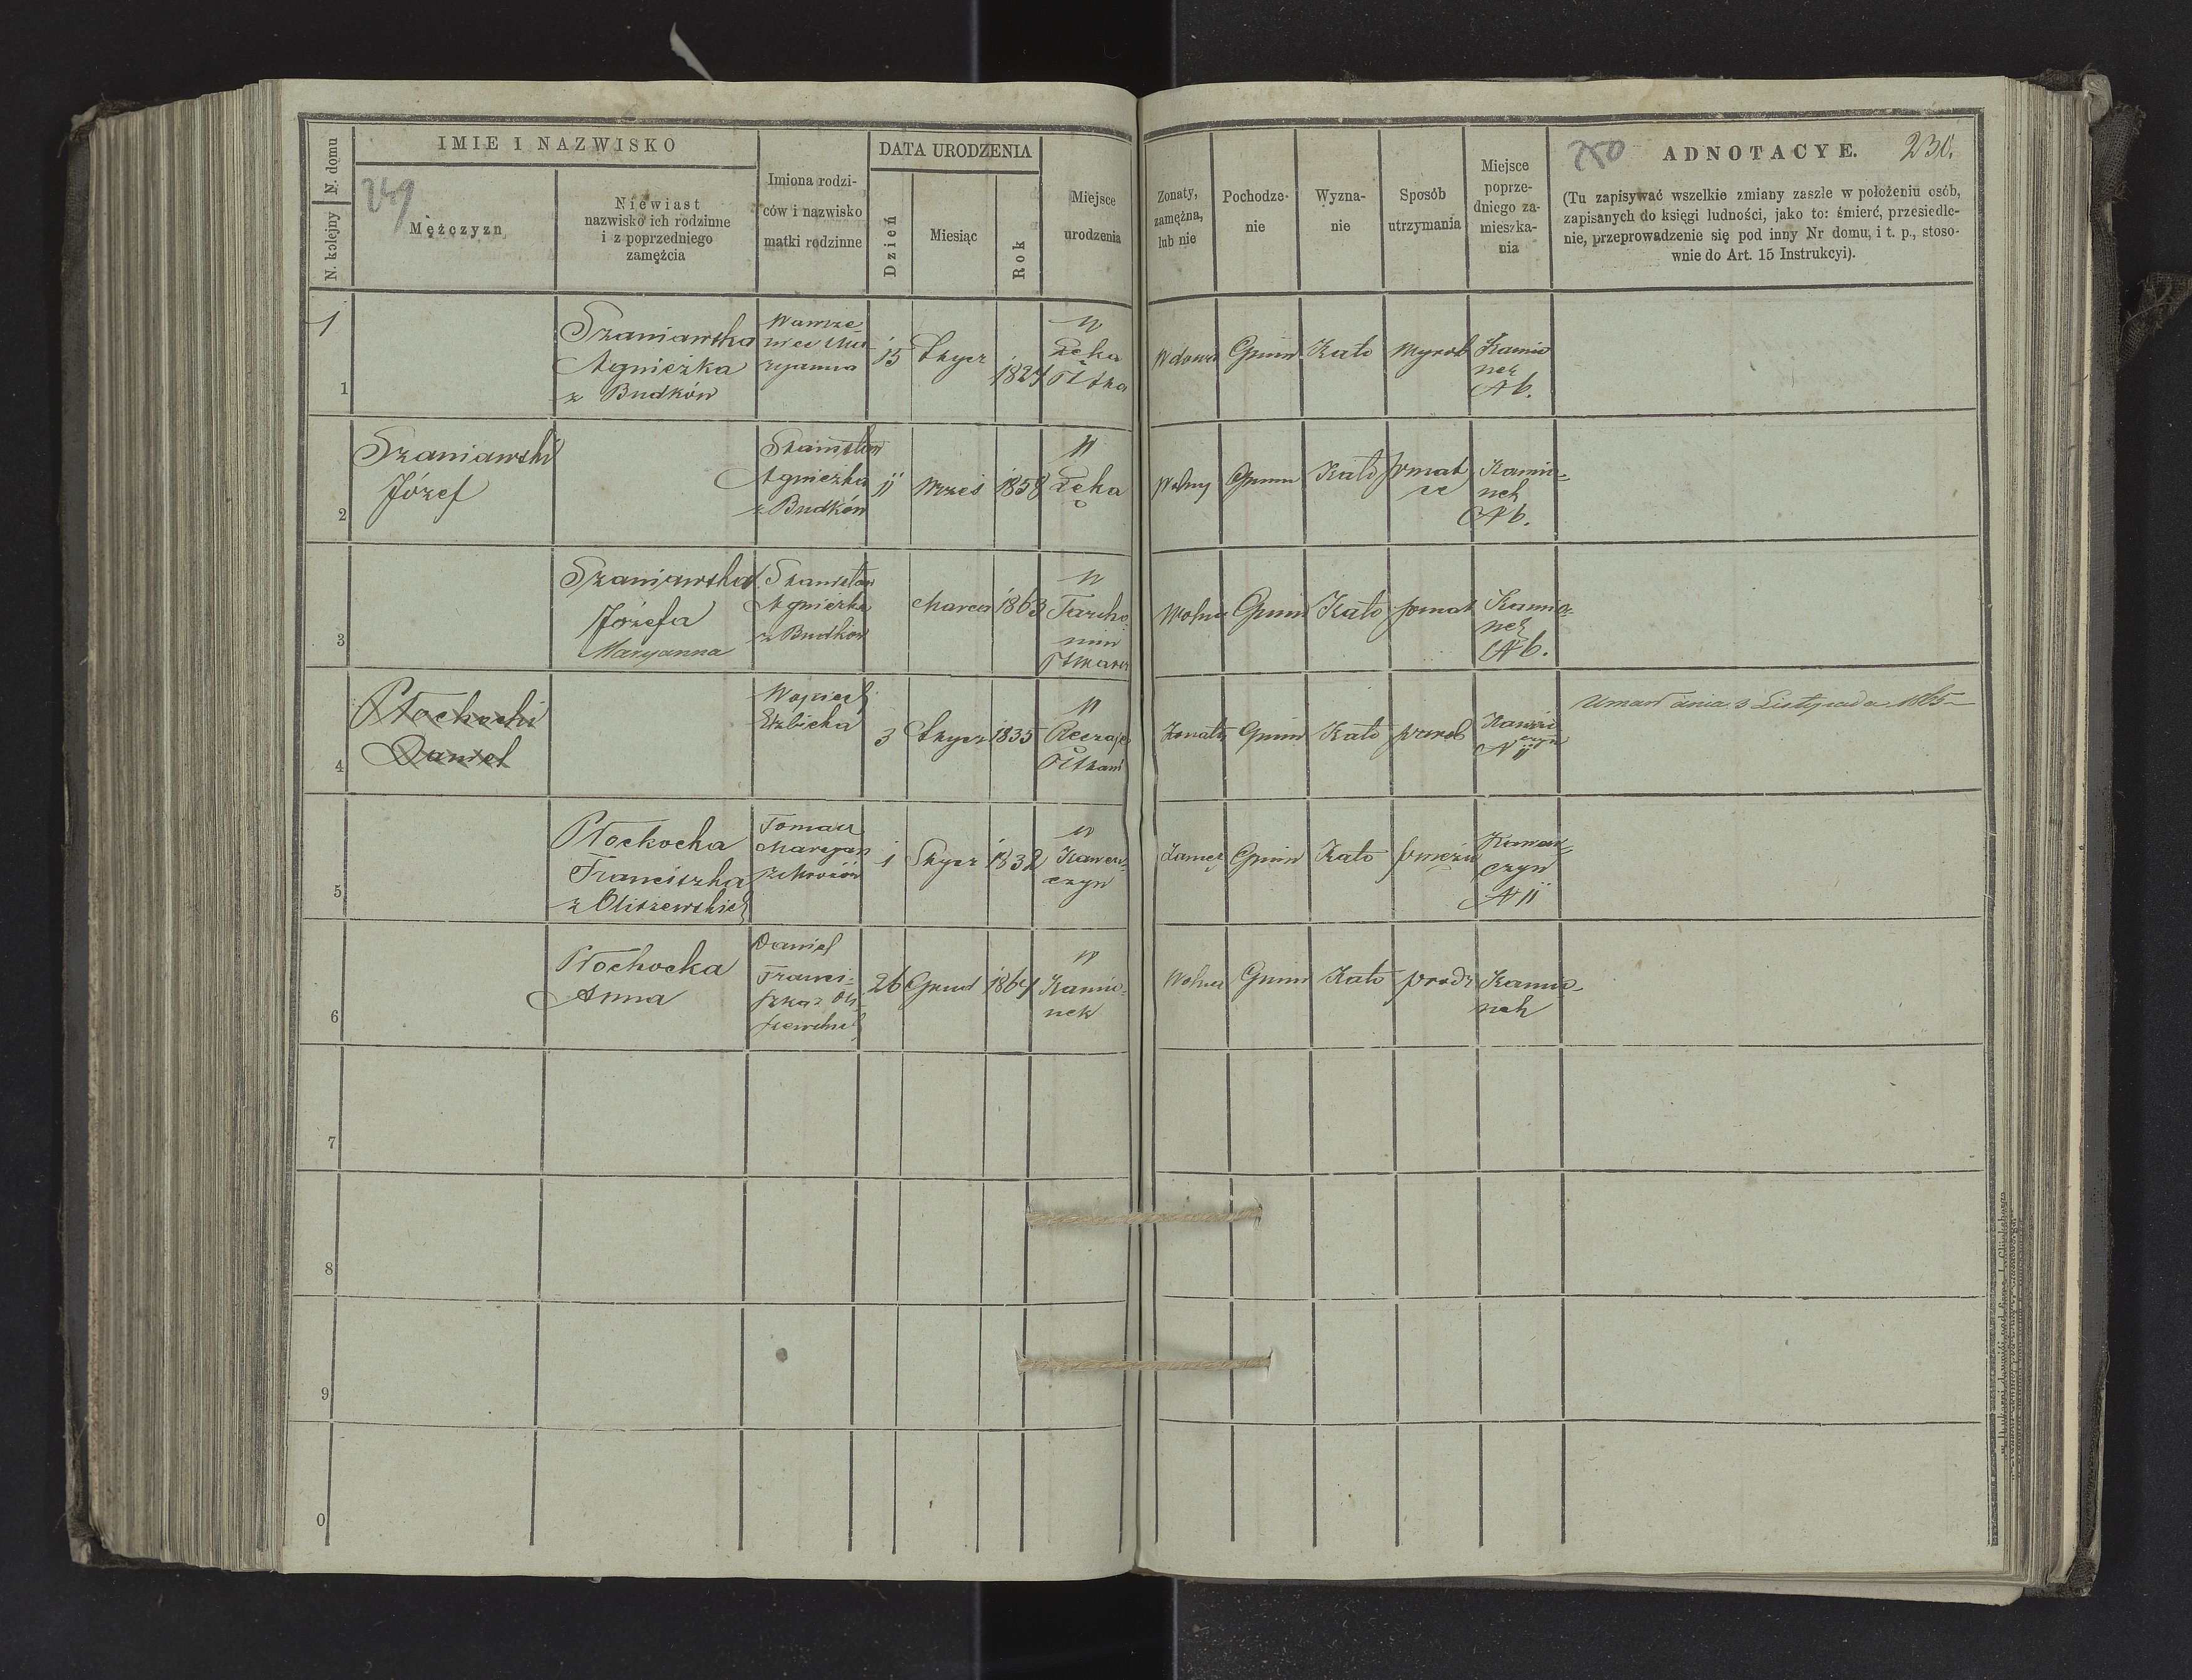 N. kolejny N. domu
IMIE I NAZWISKO
249
Mężczyzn
Niewiast
nazwisko ich rodzinne
i z poprzedniego
zamęźcia
Imiona rodzi-
ców i nazwisko
matki rodzinne
DATA URODZENIA
Dzień
Miesiąc
Rok
Miejsce
urodzenia
Żonaty,
zamężna,
lub nie
Pochodze-
nie
Wyzna-
nie
Sposób
utrzymania
Miejsce
poprze-
dniego za-
mieszka-
nia
250
ADNOTACYE.
230.
(Tu zapisywać wszelkie zmiany zaszłe w położeniu osób,
zapisanych do księgi ludności, jako to: śmierć, przesiedle-
nie, przeprowadzenie się pod inny Nr domu, i t. p., stoso-
wnie do Art. 15 Instrukcyi).
1
1
Szaniawska
Agnieżka
z Budków
Wawrze-
niec Ma-
ryanna
15
Stycz
1827
W
Łęka
Wdowa
Gmin
Kato
Wyrob
Kamio
nek
N 6.
2
Szaniawski
Józef
Stanisław
Agnieżka
z Budków
11
Wrześ
1858
W
Łęka
Wolny
Gmin
Kato
Kamio-
nek
N 6.
3
Szaniawska
Józefa
Maryanna
Stanisław
Agnieżka
z Budków
Marca
1863
W
Tarcho
min
Wolna
Gmin
Kato
Kamio-
nek
N 6.
4
Płochocki
Daniel
Wojciech
Elzbieta
3
Stycz
1835
W
Żonaty
Gmin
Kato
N 11
Umarł dnia 3 Listopada 1865
5
Płochocka
Franciszka
z Oliszewskich
Tomasz
Maryan
1
Stycz
1832
W
Kawen-
czyn
Zamęż
Gmin
Kato
Kawen-
czyn
N 11
6
Płochocka
Anna
Daniel
Franci-
szka z Oli-
szewskich
26
Grud
1864
W
Kamio-
nek
Wolna
Gmin
Kato
Kamio-
nek
7
8
9
0